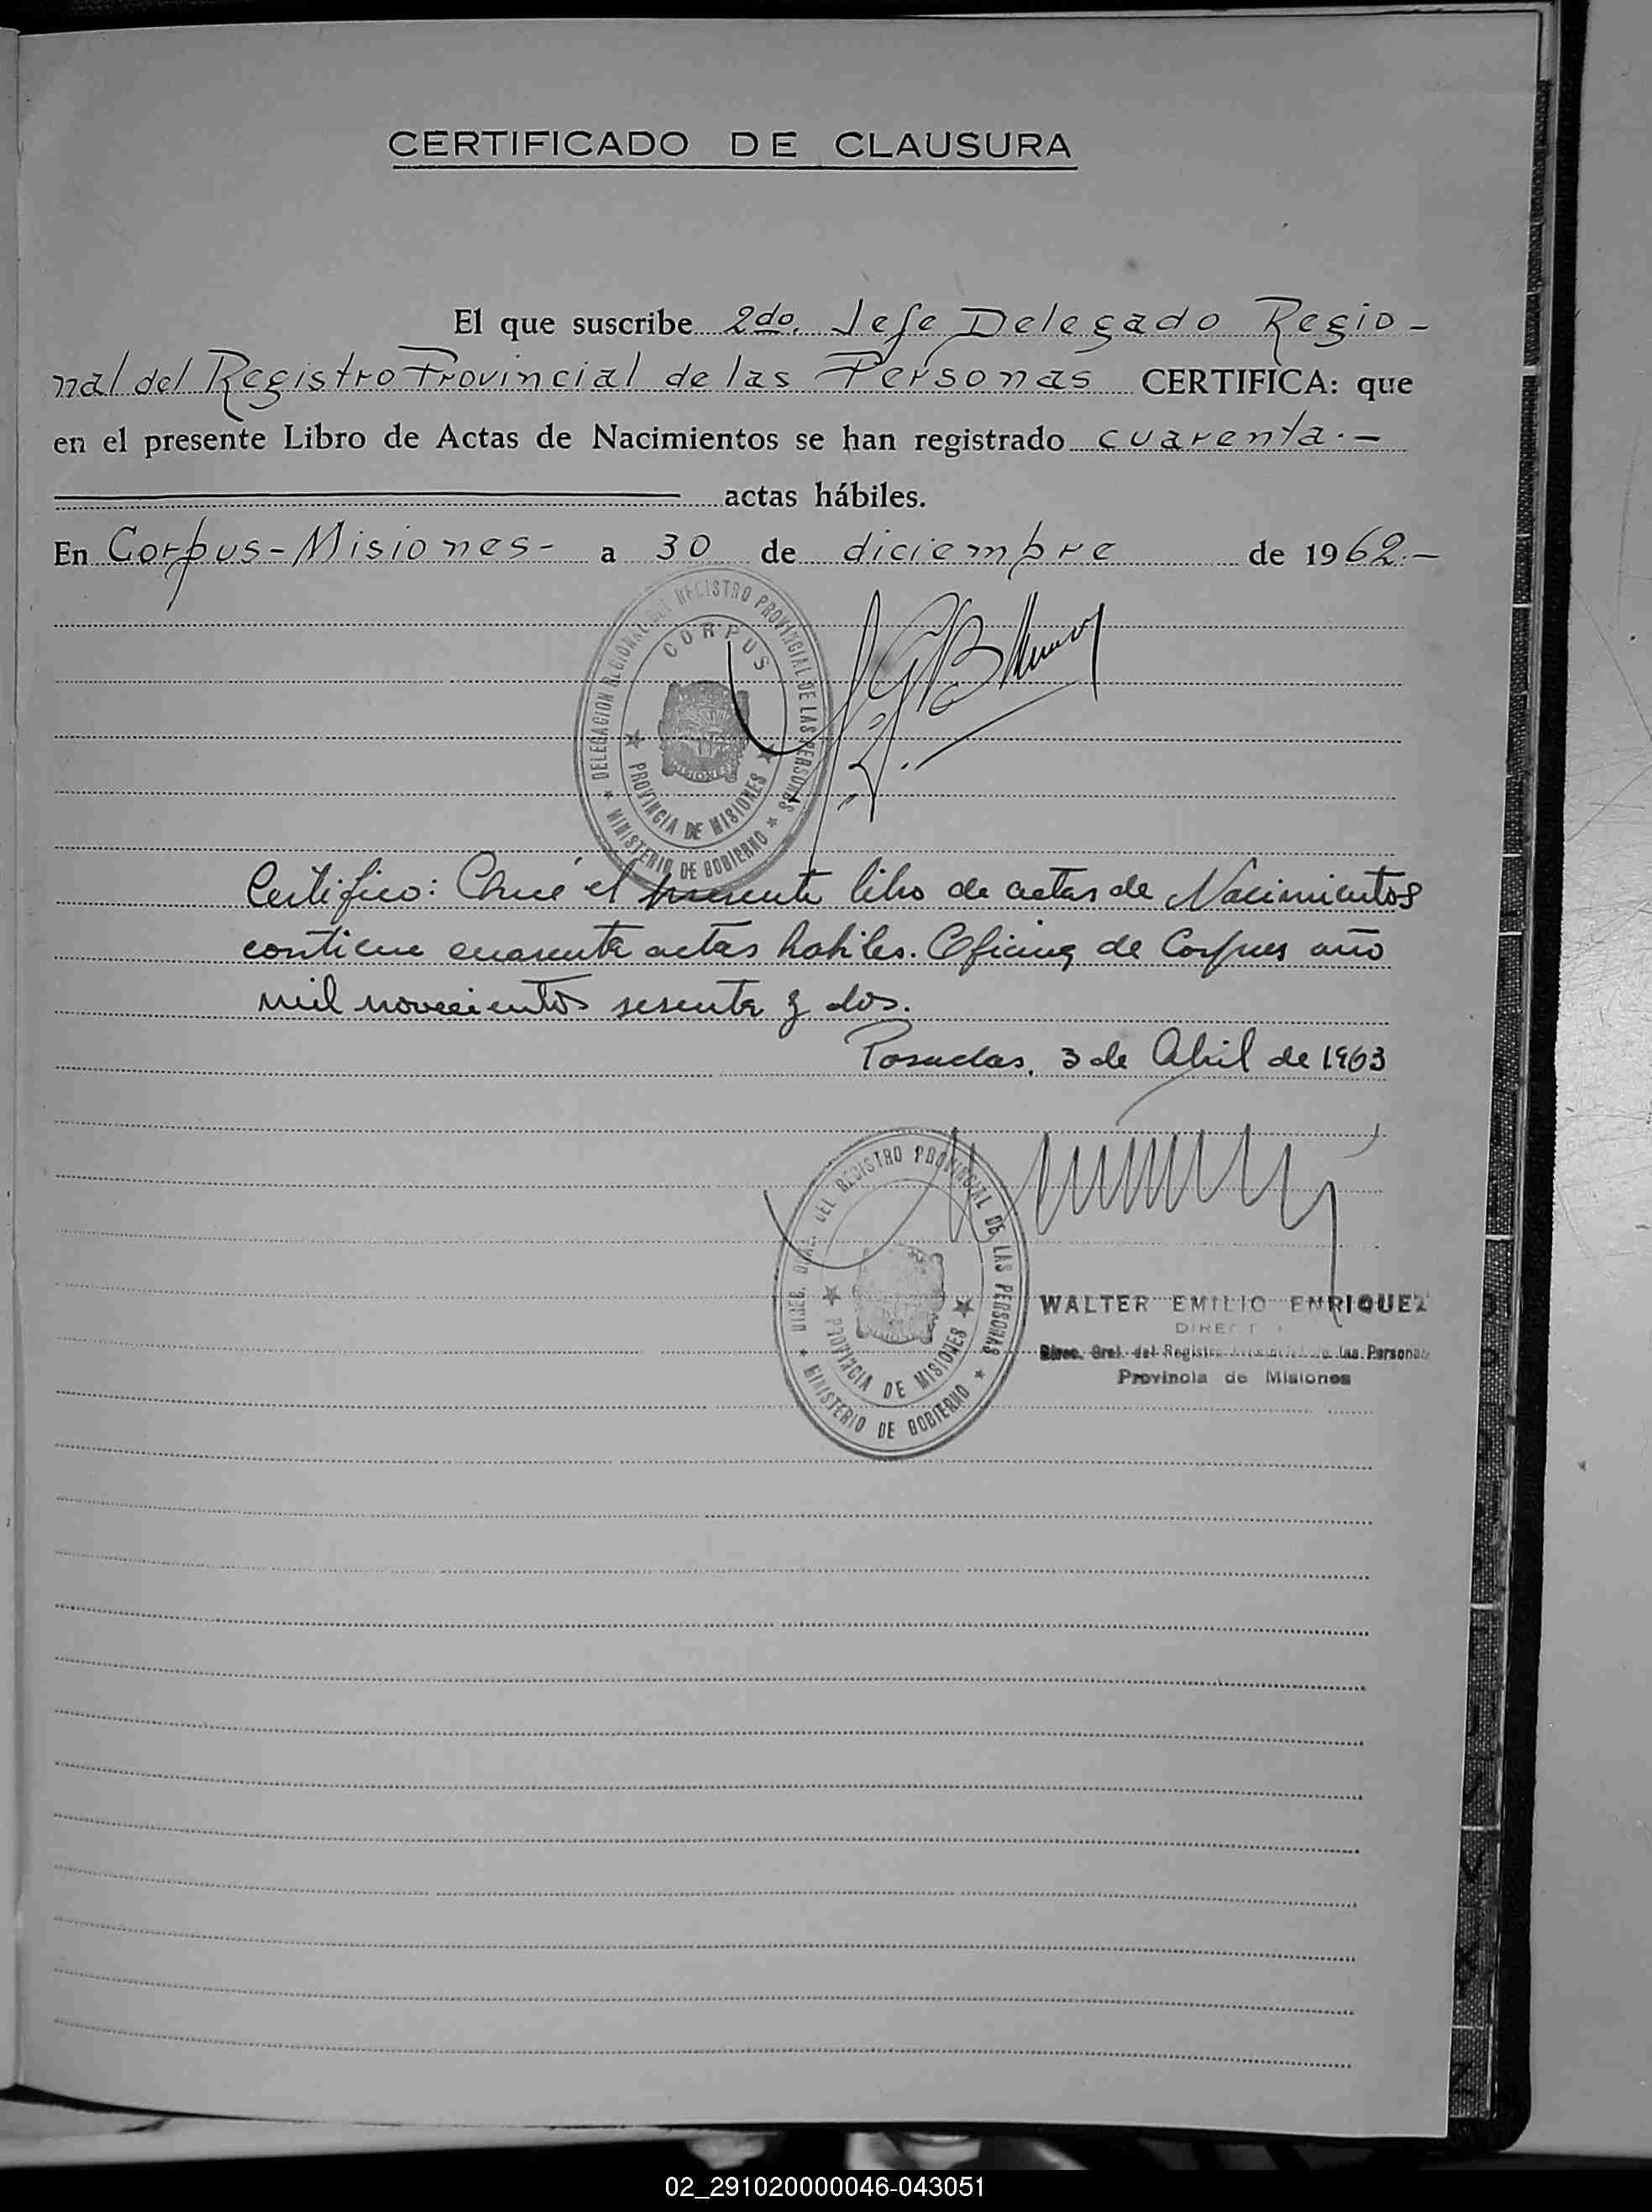 CERTIFICADO DE CLAUSURA
El que suscribe 2do. Jefe Delegado Regio-
nal del Registro Provincial de las Personas CERTIFICA: que
en el presente Libro de Actas de Nacimientos se han registrado cuarenta.-
actas hábiles.
En Corpus-Misiones- a 30 de diciembre de 1962.-
DELEGACION REGIONAL DEL REGISTRO PROVINCIAL DE LAS PERSONAS
CORPUS
PROVINCIA DE MISIONES
MINISTERIO DE GOBIERNO
Certifico: Que el presente libro de actas de Nacimientos
contiene cuarenta actas habiles. Oficina de Corpus año
mil novecientos sesenta y dos.
Posadas, 3 de Abril de 1963
DIREC. GRAL. DEL REGISTRO PROVINCIAL DE LAS PERSONAS
PROVINCIA DE MISIONES
MINISTERIO DE GOBIERNO
WALTER EMILIO ENRIQUEZ
Direc. Gral. del Registro de las Personas
Provincia de Misiones
02_291020000046-043051